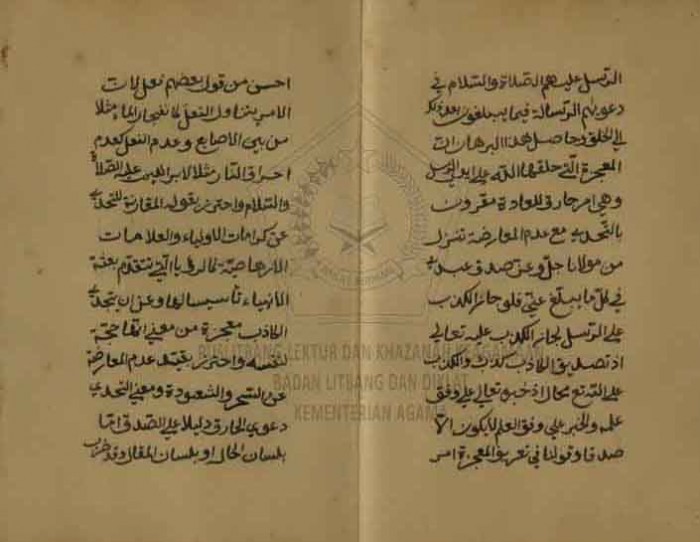 الرسل عليهم الصلاة والسلام في
دعويهم الرسالة فيما يبلغون بعد ذلك
الي الخلق وحاصل هذا البرهان ان
المعجزة التي خلقها الله علي ايدي الرسل
وهي امر خارق للعادة مقرون
بالتحدي مع عدم المعارضة تنزل
من مولانا جل وعز صدق عبدي
في كل ما يبلغ عني فلو جاز الكذب
علي الرسل لجاز الكذب عليه تعالي
اذ تصديق الكاذب كذب والكذب
علي الله تع محال اذ خبره تعالي علي وفق
علمه والخبر علي وفق العلم لا يكون الا
صدقا وقولنا في تعريف المعجزة امر
احسن من قول بعضهم فعل لان
الامر يتناول الفعل كانفجار الماء مثلا
من بين الاصابع وعدم الفعل كعدم
احراق النار مثلا لابراهيم عليه الصلاة
والسلام واحترز بقوله المقارنة للتحدي
عن كرامات الاولياء والعلامات
الارهاصية التي تتقدم بعثة
الانبياء تأسيسا لها وعن ان يتحدي
الكاذب معجزة من معني
لنفسه واحترز بقيد عدم المعارضة
عن السحر والشعوذة ومعني التحدي
دعوي الخارق دليلا علي الصدق اما
بلسان الحال او بلسان المقال وقد ضرب
PUSLITBANG LEKTUR DAN KHAZANAH KEAGAMAAN
BADAN LITBANG DAN DIKLAT
KEMENTERIAN AGAMA